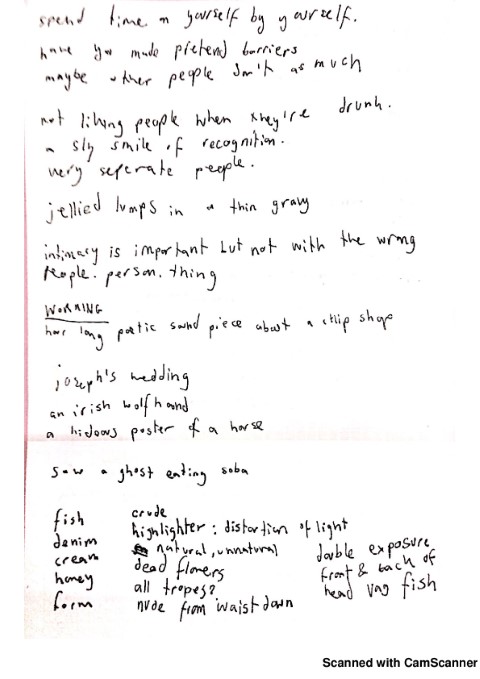 spend time on yourself by yourself.
have you made pretend barriers
maybe other people don't as much
not liking people when they're drunk.
a sly smile of recognition.
very seperate people.
jellied lumps in a thin gravy
intimacy is important but not with the wrong
people. person. thing
WORKING
hour long poetic sound piece about a chip shop
joseph's wedding
an irish wolfhound
a hideous poster of a horse
saw a ghost eating soba
fish crude
denim highlighter : distortion of light
cream natural, unnatural double exposure
honey dead flowers front & back of
form all tropes? head fish
nude from waist down